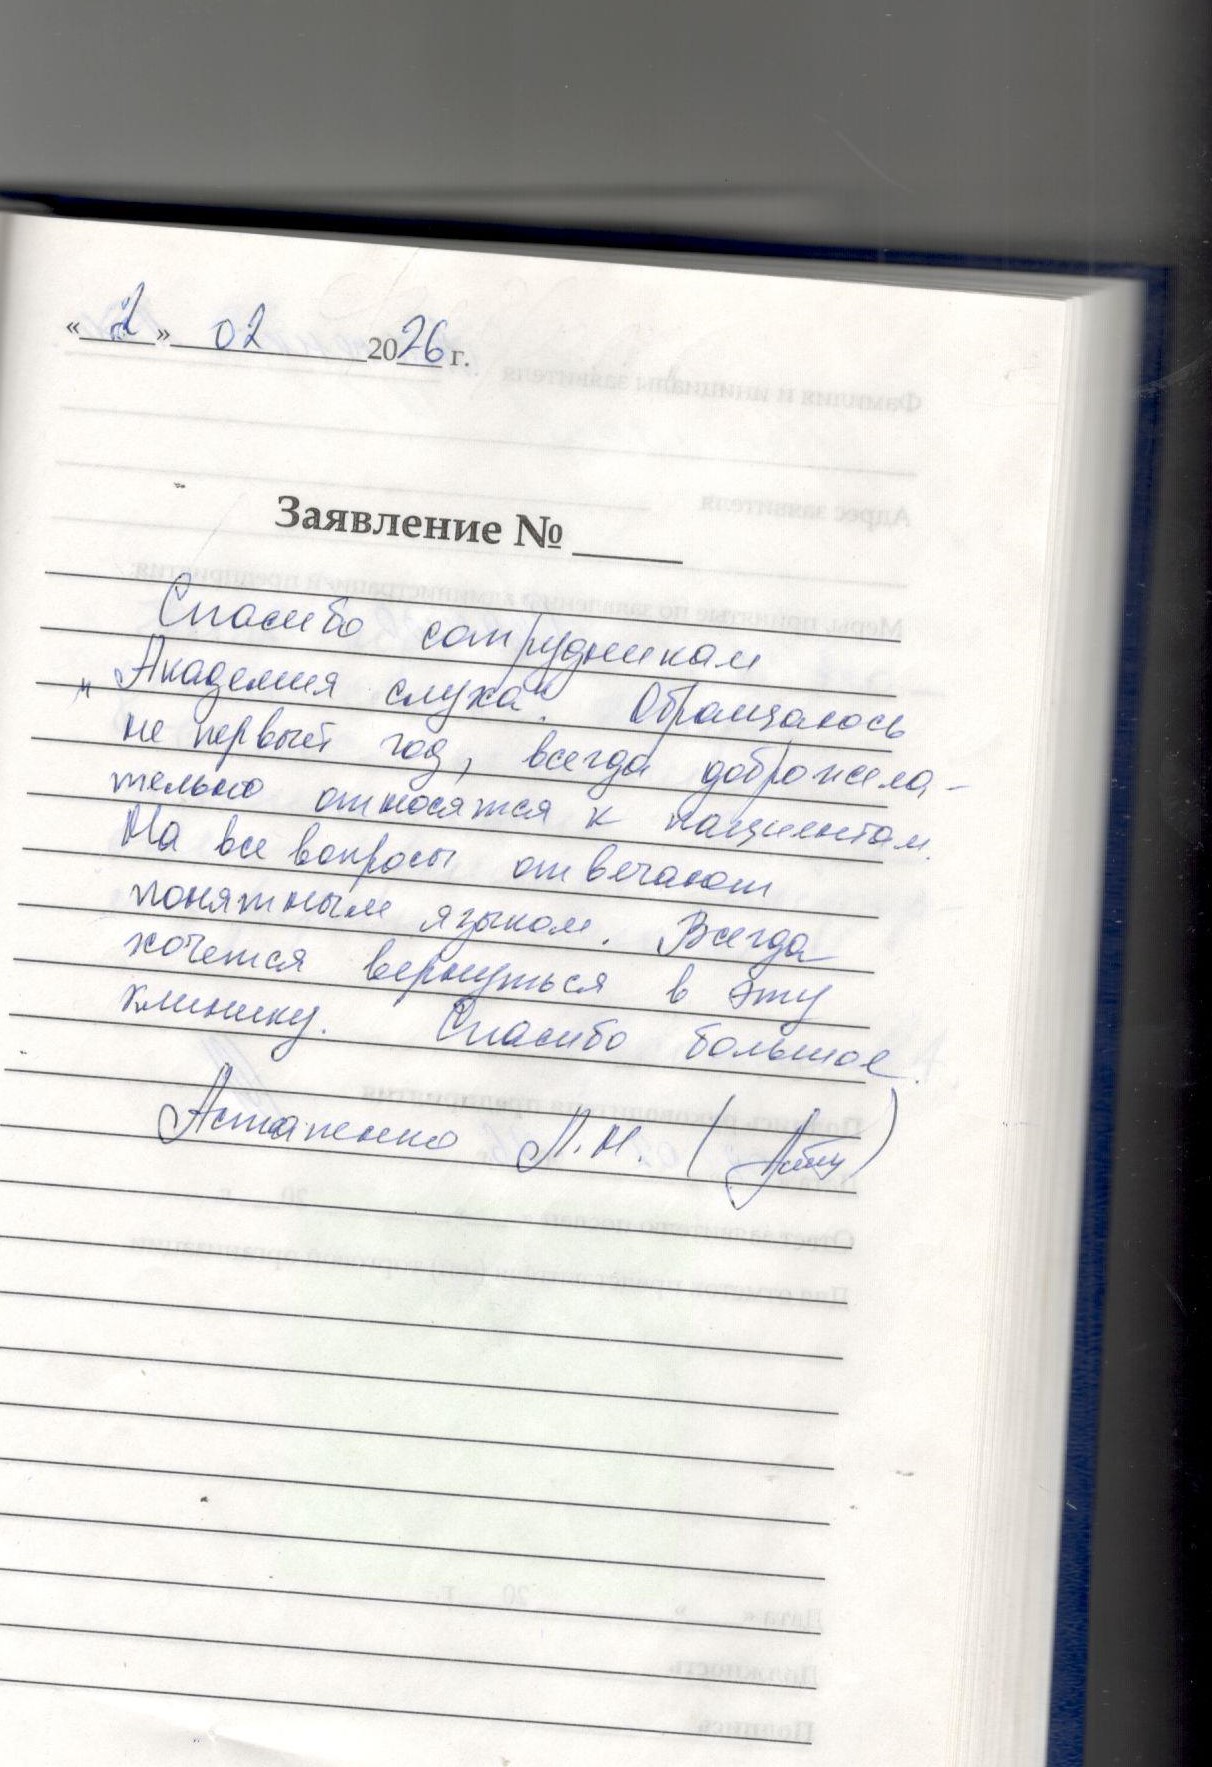 «2» 02 2026 г.
Заявление № ____
Спасибо сотрудникам
"Академия слуха". Обращаюсь
не первый год, всегда доброжела-
тельно относятся к пациентам.
На все вопросы отвечают
понятным языком. Всегда
хочется вернуться в эту
клинику. Спасибо большое.
Астапенко Л.Н. ( )